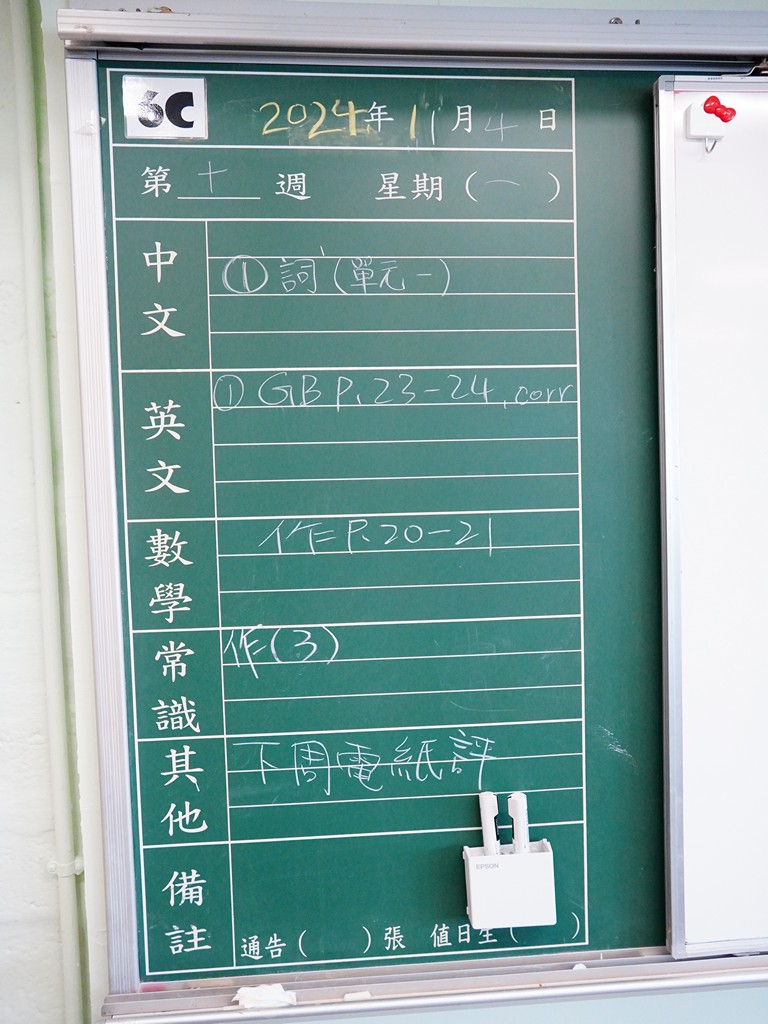 6C 2024年11月4日
第十週 星期(一)
中文
① 詞(單元一)
英文
① GB P.23-24, corr
數學
作 P.20-21
常識
作(3)
其他
下周電紙評
備註
EPSON
通告( )張 值日生( )